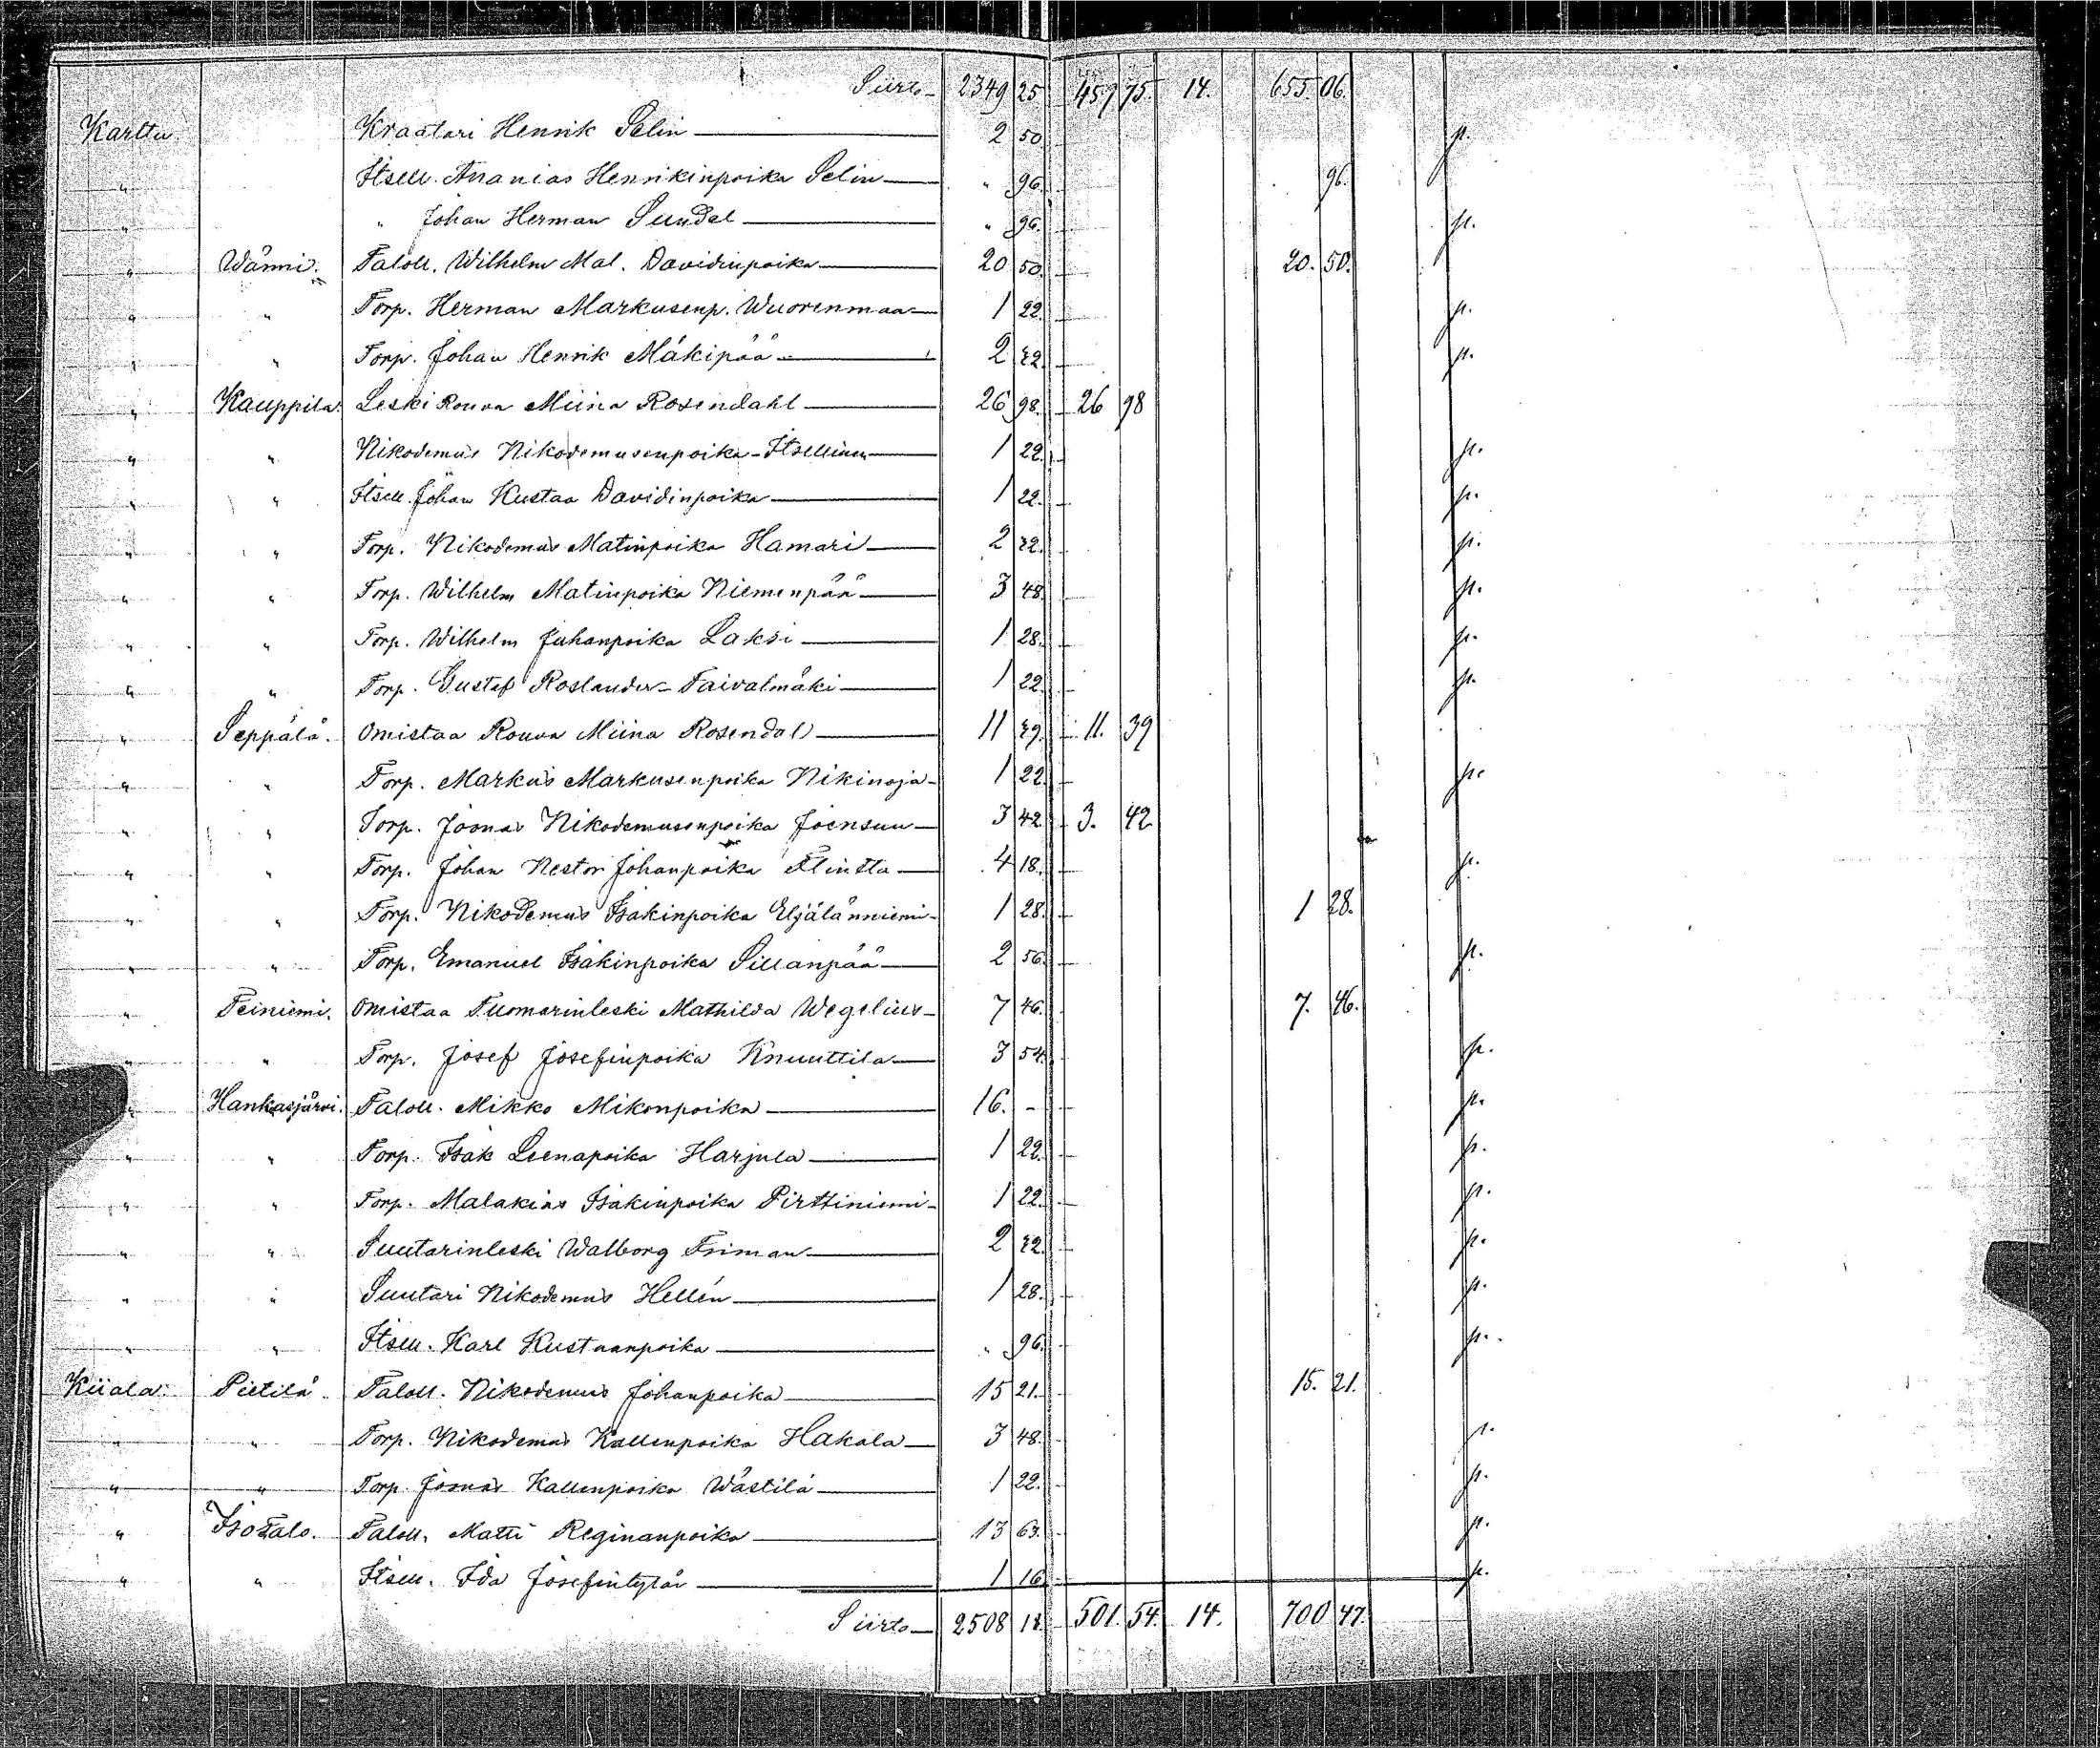 Siirto 2349 25 459 75. 14. 655. 06.
Karttu Kraatari Henrik Selin 2 50 p.
" Itsell. Ananias Henrikinpoika Selin " 96. 96.
" " Johan Herman Sundel " 96. p.
" Wänni. Taloll. Wilhelm Mal. Davidinpoika 20 50. 20. 50.
" " Torp. Herman Markusenp. Wuorenmaa 1 22. p.
" " Torp. Johan Henrik Mäkipää 2 72. p.
" Kauppila. Leski Rouva Miina Rosendahl 26 98. 26 98
" " Nikodemus Nikodemusenpoika Itsellinen 1 22. p.
" " Itsell. Johan Kustaa Davidinpoika 1 22. p.
" " Torp. Nikodemus Matinpoika Hamari 2 72. p.
" " Torp. Wilhelm Matinpoika Niemenpää 3 48. p.
" " Torp. Wilhelm Juhanpoika Laksi 1 28. p.
" " Torp. Gustaf Roslander Taivalmäki 1 22. p.
" Seppälä. Omistaa Rouva Miina Rosendal 11 39. 11. 39
" " Torp. Markus Markusenpoika Nikinoja 1 22. p.
" " Torp. Joonas Nikodemusenpoika Joensuu 3 42 3. 42
" " Torp. Johan Nestor Johanpoika Flintta 4 18. p.
" " Torp. Nikodemus Isakinpoika Eljälänniemi 1 28. 1 28.
" " Torp. Emanuel Isakinpoika Sillanpää 2 56. p.
" Teiniemi. Omistaa Tuomarinleski Mathilda Wegelius 7 46. 7. 46.
" " Torp. Josef Josefinpoika Knuuttila 3 54. p.
" Hankasjärvi. Taloll. Mikko Mikonpoika 16. - p.
" " Torp. Isak Leenapoika Harjula 1 22. p.
" " Torp. Malakias Isakinpoika Pirttiniemi 1 22. p.
" " Suutarinleski Walborg Friman 2 72. p.
" " Suutari Nikodemus Hellén 1 28. p.
" " Itsell. Karl Kustaanpoika " 96. p.
Kiiala. Pietilä. Taloll. Nikodemus Johanpoika 15 21. 15. 21.
" " Torp. Nikodemus Kallenpoika Hakala 3 48. p.
" " Torp. Joonas Kallenpoika Wästilä 1 22. p.
" Isotalo. Taloll. Matti Reginanpoika 13 63. p.
" " Itsell. Ida Josefintytär 1 16 p.
Siirto 2508 18. 501. 54. 14. 700 47.